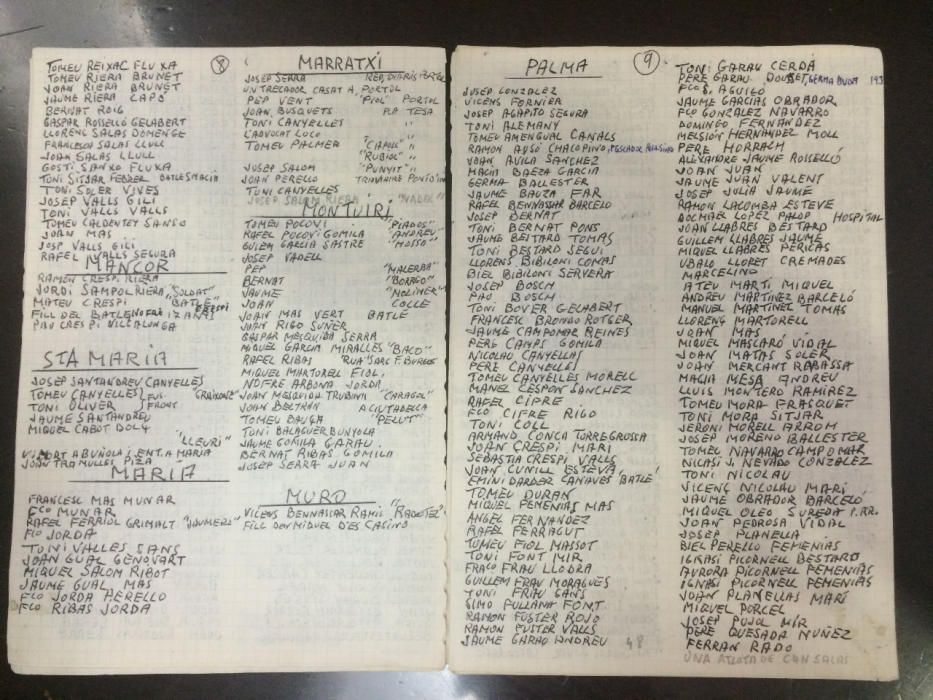 8
TOMEU REIXAC FLUXA
TOMEU RIERA BRUNET
JOAN RIERA BRUNET
JAUME RIERA CAPÓ
BERNAT ROIG
GASPAR ROSSELLO GELABERT
LLORENÇ SALAS DOMENGE
FRANCESCA SALAS LLULL
JOAN SALAS LLULL
GOSTI SANXO FLUXA
TONI SITJAR FERRER BATLE SMACIA
TONI SOLER VIVES
JOSEP VALLS GILI
TONI VALLS VALLS
TOMEU CALDENTEY SANSO
JOAN MAS
JOSP VALLS GILI
RAFEL VALLS SEGURA
MANCOR
RAMON CRESPI RIERA
JORDI SAMPOL RIERA "SOLDAT"
MATEU CRESPI "BATLE"
FILL DEL BATLE 17 ANYS CRESPI
PAU CRESPI VILLALONGA
STA MARIA
JOSEP SANTANDREU CANYELLES
TOMEU CANYELLES
TONI OLIVER FRONT
JAUME SANTANDREU
MIGUEL CABOT DOLÇ
"LLEURI"
MORT A BUÑOLA, ENT. A MARIA
JOAN TRAMULLES PIZA
MARIA
FRANCESC MAS MUNAR
FCO MUNAR
RAFEL FERRIOL GRIMALT "JAUMERO"
FCO JORDA
TONI VALLES SANS
JOAN GUAL GENOVART
MIQUEL SALOM RIBOT
JAUME GUAL MAS
FCO JORDA HERELLO
FCO RIBAS JORDA
MARRATXI
JOSEP SERRA REP, DIARIS PORTOL
UN TRECADOR CASAT A, PORTOL
PEP VENT "FIOL" PORTOL
JOAN BUSQUETS PLA TESA
TONI CANYELLES "
L'ADVOCAT LUCO "
TOMEU PALMER "CAPOLL" "
"RUBIOL" "
JOSEP SALOM "PUNYIT" "
JOAN PERELLO TRIONAIRE PONT D'INCA
TONI CANYELLES
JOSEP SALOM RIERA "NADEL"
MONTUIRI
TOMEU POCOVI "PIADOS"
RAFEL POCOVI GOMILA "ANDREU"
GUIEM GARCIA SASTRE "MOSSO"
JOSEP VADELL
PEP "MALERBA"
BERNAT "BORAGO"
JAUME "MOLINER"
JOAN COLLE
JOAN MAS VERT BATLE
JOAN RIGO SUÑER
GASPAR MESQUIDA SERRA
MIQUEL GARCIA MIRALLES "BACO"
RAFEL RIBAS "RUA" SARC F. BURGOS
MIQUEL MARTORELL FIOL
NOFRE ARBONA JORDA
JOAN MESQUIDA TRUBINA "CARAGOL"
JOAN BELTRÁN A CIUTADELLA
TOMEU BAUÇA "PELUT"
TONI BALAGUER BUNYOLA
JAUME GOMILA GARAU
BERNAT RIBAS GOMILA
JOSEP SERRA JUAN
MURO
VICENS BENNASSAR RAMIS "RADOTEZ"
FILL DEN MIQUEL D'ES CASINO
9
PALMA
JOSEP GONZALEZ
VICENS FORNIER
JOSEP AGAPITO SEGURA
TONI ALEMANY
TOMEU AMENGUAL CANALS
RAMON AUSÓ CHACOPINO, PESCADOR
JOAN AVILA SANCHEZ
MACIA BAEZA GARCIA
GERMA BALLESTER
JAUME BAUZA FAR
RAFEL BENNASSAR BARCELO
JOSEP BERNAT
TONI BERNAT PONS
JAUME BESTARD TOMAS
TONI BESTARD SEGUI
LLORENS BIBILONI COMAS
BIEL BIBILONI SERVERA
JOSEP BOSCH
PAU BOSCH
TONI BOVER GELABERT
FRANCESC BRONDO ROTGER
JAUME CAMPOMAR REINES
PERE CAMPS GOMILA
NICOLAU CANYELLAS
PERE CANYELLES
TOMEU CANYELLES MORELL
MANEL CESPON SANCHEZ
RAFEL CIFRE
FCO CIFRE RIGO
TONI COLL
ARMAND CONCA TORREGROSSA
JOAN CRESPI MARI
SEBASTIA CRESPI VALLS
JOAN CUNILL ESTEVA
EMINI DARDER CANAVES BATLE
TOMEU DURAN
MIQUEL FEMENIAS MAS
ANGEL FERNANDEZ
RAFEL FERRAGUT
TOMEU FIOL MASSOT
TONI FONT MIR
FRACO FRAU LLODRA
GUILLEM FRAU MORAGUES
TONI FRAU GANS
SIMO FULLANA FONT
RAMON FUSTER ROJO
RAMON FUSTER VALLS
JAUME GARAU ANDREU 48
TONI GARAU CERDA
PERE GARAU DOUSSET, GERMA BUDA 193
FCO S. AGUILO
JAUME GARCIAS OBRADOR
FCO GONZALEZ NAVARRO
DOMINGO FERNANDEZ
MELSIÓN HERNANDEZ MOLL
PERE HORRACH
ALEXANDRE JAUME ROSSELLO
JOAN JUAN
JAUME JUAN VALENT
JOSEP JULIA JAUME
RAMON LACOMBA ESTEVE
LOPEZ PALOP HOSPITAL
JOAN LLABRES BESTARD
GUILLEM LLABRES JAUME
MIQUEL LLABRES PERICAS
UBALO LLORET CREMADES
MARCELINO
ATEU MARTI MIQUEL
ANDREU MARTINEZ BARCELÓ
MANUEL MARTINEZ TOMAS
LLORENÇ MARTORELL
JOAN MAS
MIQUEL MASCARÓ VIDAL
JOAN MATAS SOLER
JOAN MERCANT RABASSA
MACIA MESA ANDREU
LLUIS MONTERO RAMIREZ
TOMEU MORA FRASQUET
TONI MORA SITJAR
JERONI MORELL ARROM
JOSEP MORENO BALLESTER
TOMEU NAVARRO CAMPOMAR
NICASI J. NEVADO GONZALEZ
TONI NICOLAU
VICENÇ NICOLAU MARI
JAUME OBRADOR BARCELÓ
MIQUEL OLEO SUREDA P.RR.
JOAN PEDROSA VIDAL
JOSEP PLANELLA
BIEL PERELLO FEMENIAS
IGNASI PICORNELL BESTARD
AURORA PICORNELL FEMENIAS
IGNASI PICORNELL FEMENIAS
JOAN PLANELLAS MARÍ
MIQUEL PORCEL
JOSEP PUJOL MIR
PERE QUESADA NUÑEZ
FERRAN RADO
UNA ATLOTA DE CAN SALAS